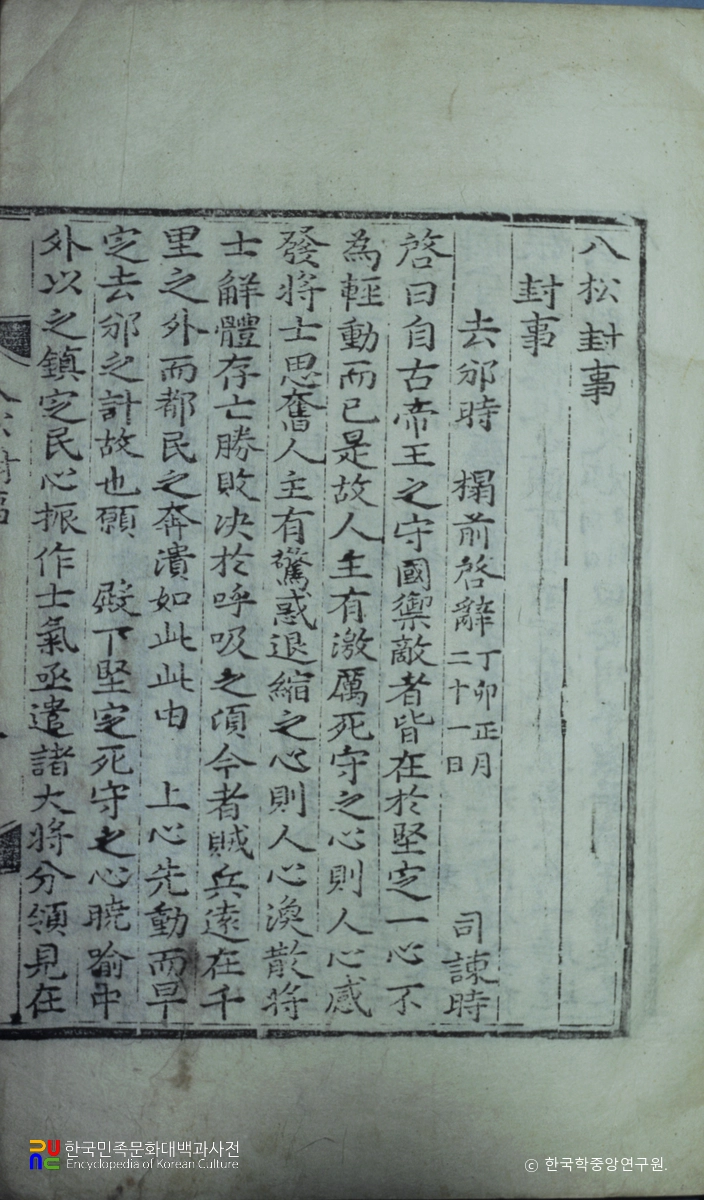 八松封事
封事
去邠時　榻前啓辭 丁卯正月二十一日　司諫時
啓曰自古帝王之守國禦敵者皆在於堅定一心不
為輕動而已是故人主有激厲死守之心則人心感
發將士思奮人主有驚惑退縮之心則人心渙散將
士解體存亡勝敗決於呼吸之頃今者賊兵遠在千
里之外而都民之奔潰如此此由　上心先動而早
定去邠之計故也願　殿下堅定死守之心曉喩中
外以之鎮定民心振作士氣亟遣諸大將分領見在
한국민족문화대백과사전
Encyclopedia of Korean Culture
© 한국학중앙연구원.